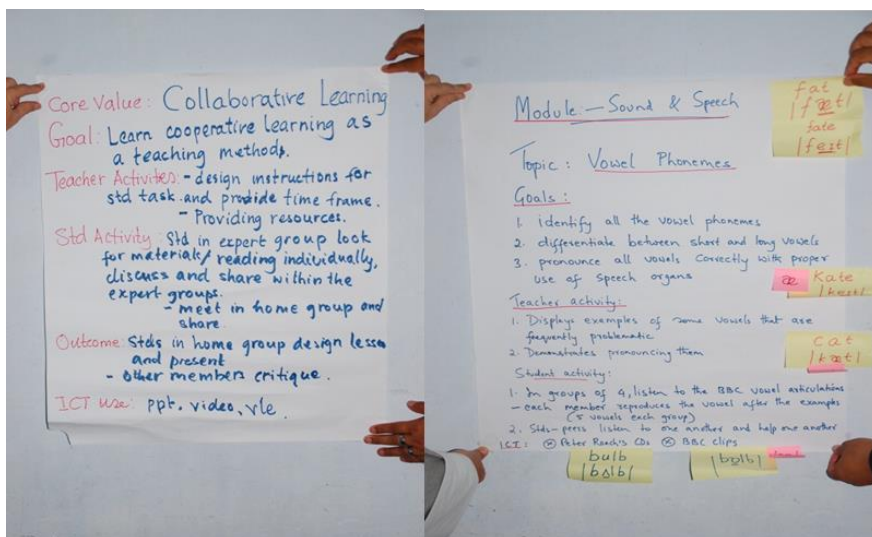 Core Value: Collaborative Learning
Goal: Learn cooperative learning as
a teaching methods.
Teacher Activites: - design instructions for
std task and provide time frame.
- Providing resources.
Std Activity: Std in expert group look
for materials/reading individually,
discuss and share within the
expert groups.
- meet in home group and
share
Outcome: Stds in home group design lesson
and present
- other members critique.
ICT Use: ppt. video, vle.
Module:- Sound & Speech
Topic: Vowel Phonemes
Goals:
1. identify all the vowel phonemes
2. differentiate between short and long vowels
3. pronounce all vowels correctly with proper
use of speech organs
Teacher activity:
1. Displays examples of some vowels that are
frequently problematic
2. Demonstrates pronouncing them
Student activity:
1. In groups of 4, listen to the BBC vowel articulations
- each member reproduces the vowel after the examples
(5 vowels each group)
2. Stds-peers listen to one another and help one another
ICT: Peter Roach's CDs BBC clips
fat
|fæt|
fate
|feɪt|
æ
Kate
|keɪt|
cat
|kæt|
bulb
|bʌlb|